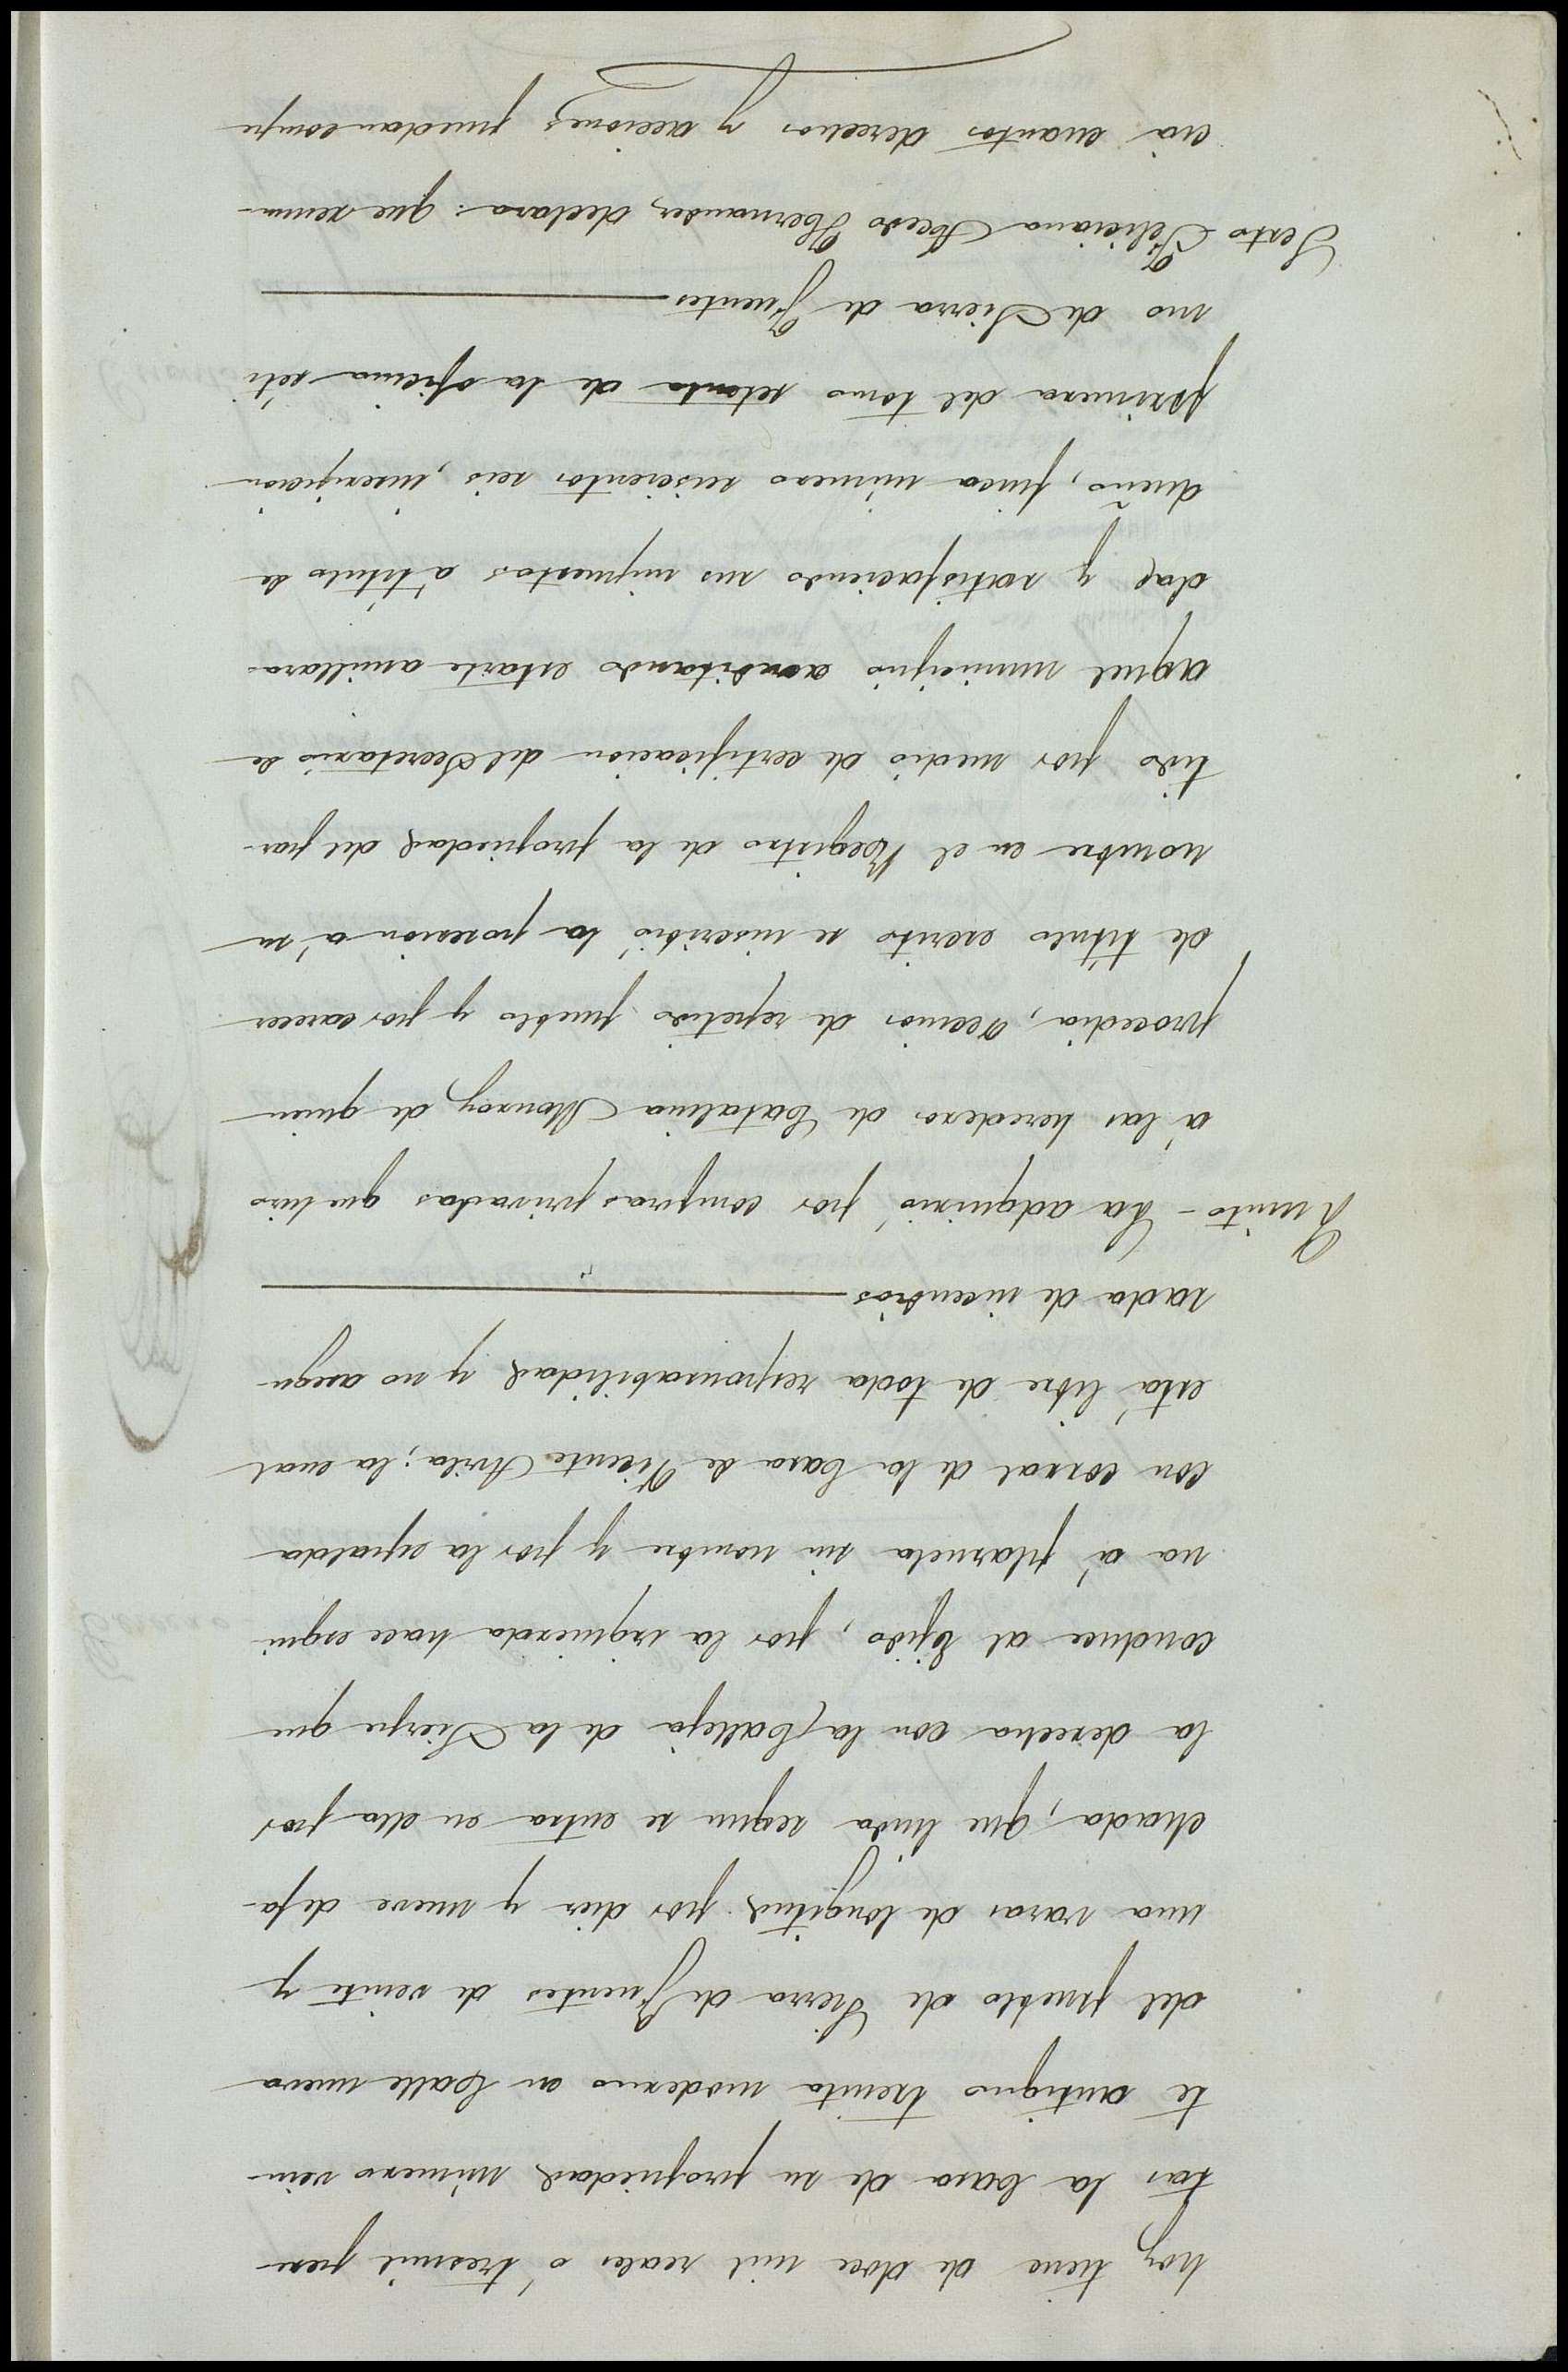 hoy tiene de doce mil reales ó tresmil pese-
tas la Casa de su propiedad número vein-
te antiguo treinta moderno en Calle nueva
del pueblo de Sierra de Fuentes de veinte y
una varas de longitud por diez y nueve de fa-
chada, que linda segun se entra en ella por
la derecha con la Calleja de la Sierpe que
conduce al Ejido, por la izquierda hace esqui
na á plazuela sin nombre y por la espalda
con corral de la Casa de Vicente Avila; la cual
está libre de toda responsabilidad y no asegu-
rada de incendios
Quinto - La adquirió por compras privadas que hizo
á las herederos de Catalina Monroy, de quien
procedia, vecinos de repetido pueblo y por carecer
de título escrito se inscribió la posesion á su
nombre en el Registro de la propiedad del par-
tido por medio de certificacion del Secretario de
aquel municipio acreditando estarle amillara-
da y satisfaciendo sus impuestos á título de
dueño, finca número seiscientos seis, inscripcion
primera del tomo setenta de la oficina séti
mo de Sierra de Fuentes
Sexto Feliciana Acedo Hernandez, declara: que renun-
cia cuantos derechos y acciones puedan compe